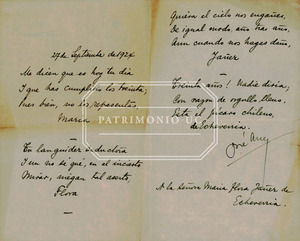 27 de Septiembre de 1924
Me dicen que es hoy tu día
Y que has cumplido los treinta;
Pues bien, no los representas
María
Tu languidez seductora
Y un no sé qué, en el incierto
Mirar, niegan tal aserto,
Flora
Quiera el cielo nos engañes,
De igual modo, año tras año,
Aun cuando nos hagas daño,
Yañez
Treinta años! Nadie diría;
Con razón de orgullo lleno,
Está el pícaro chileno,
de Echeverría.
José
A la Señora María Flora Yañez de
Echeverría.
PATRIMONIO UC